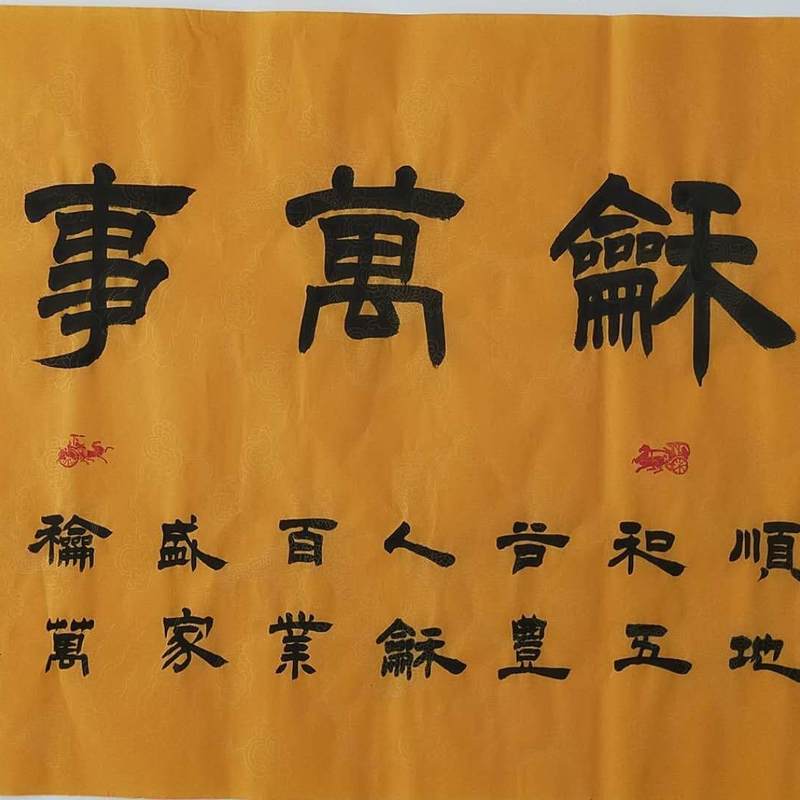 龢萬事
順地
和五
谷豐
人龢
百業
盛家
龢萬